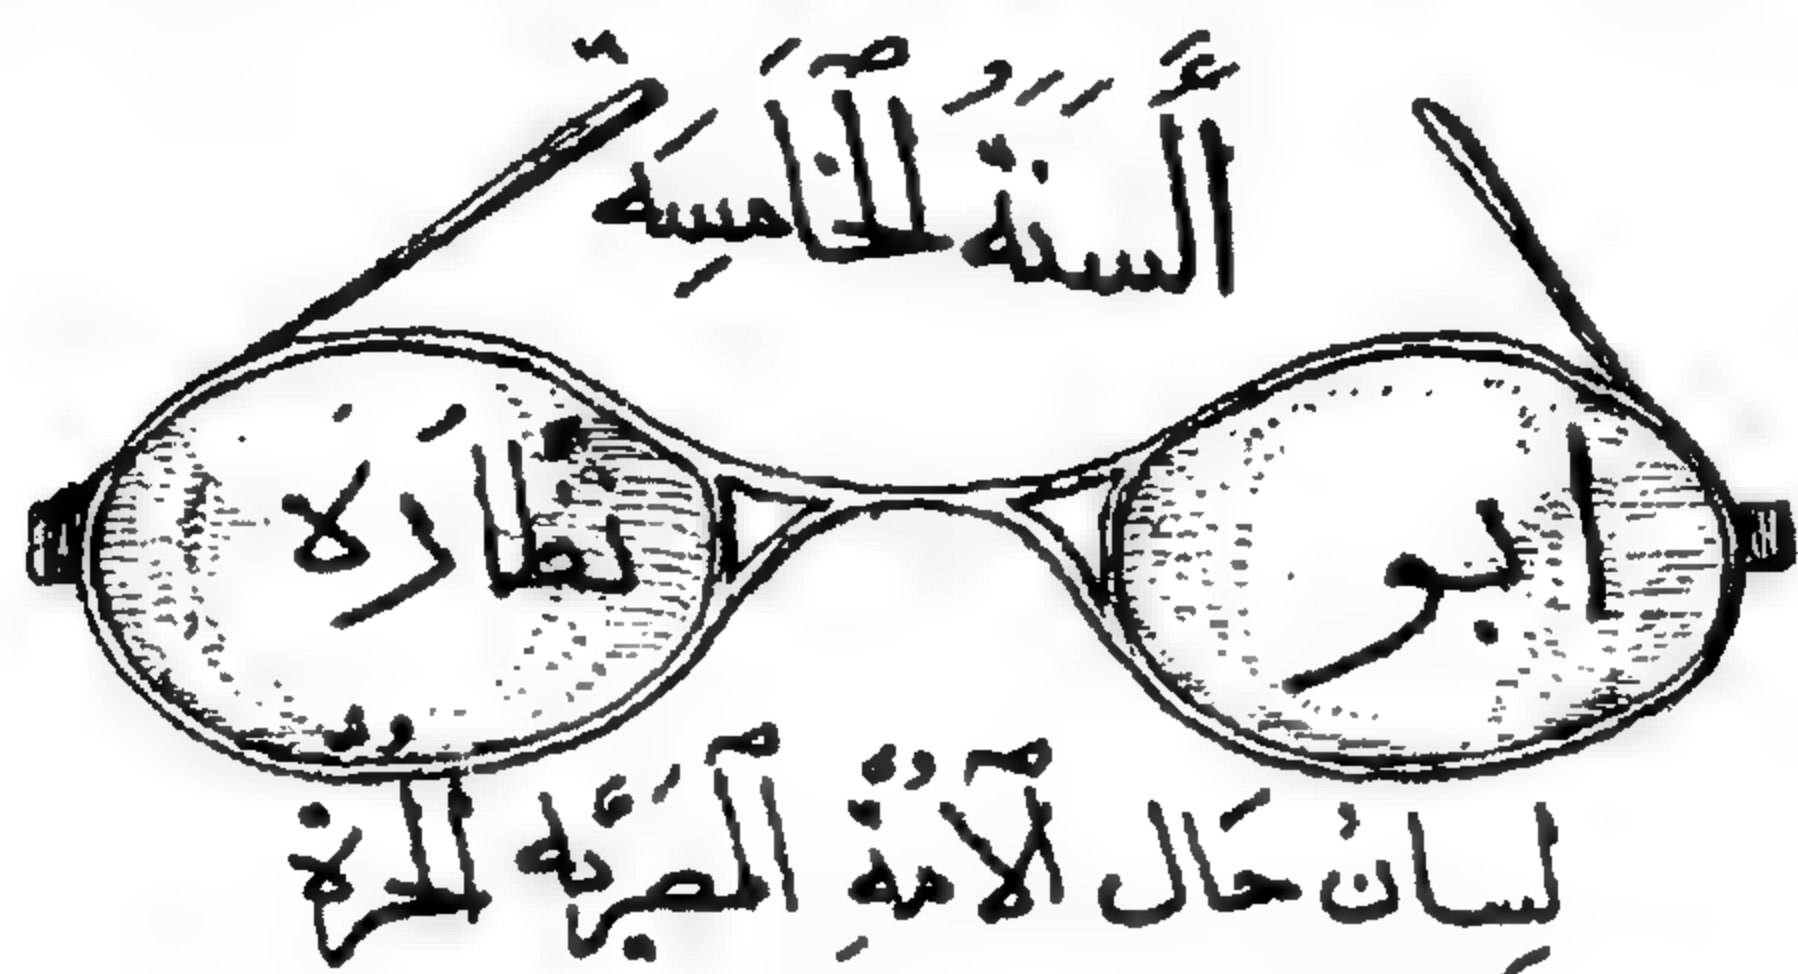 السنة الخامسة
ابو نظاره
لسان حال الامة المصرية الحرة